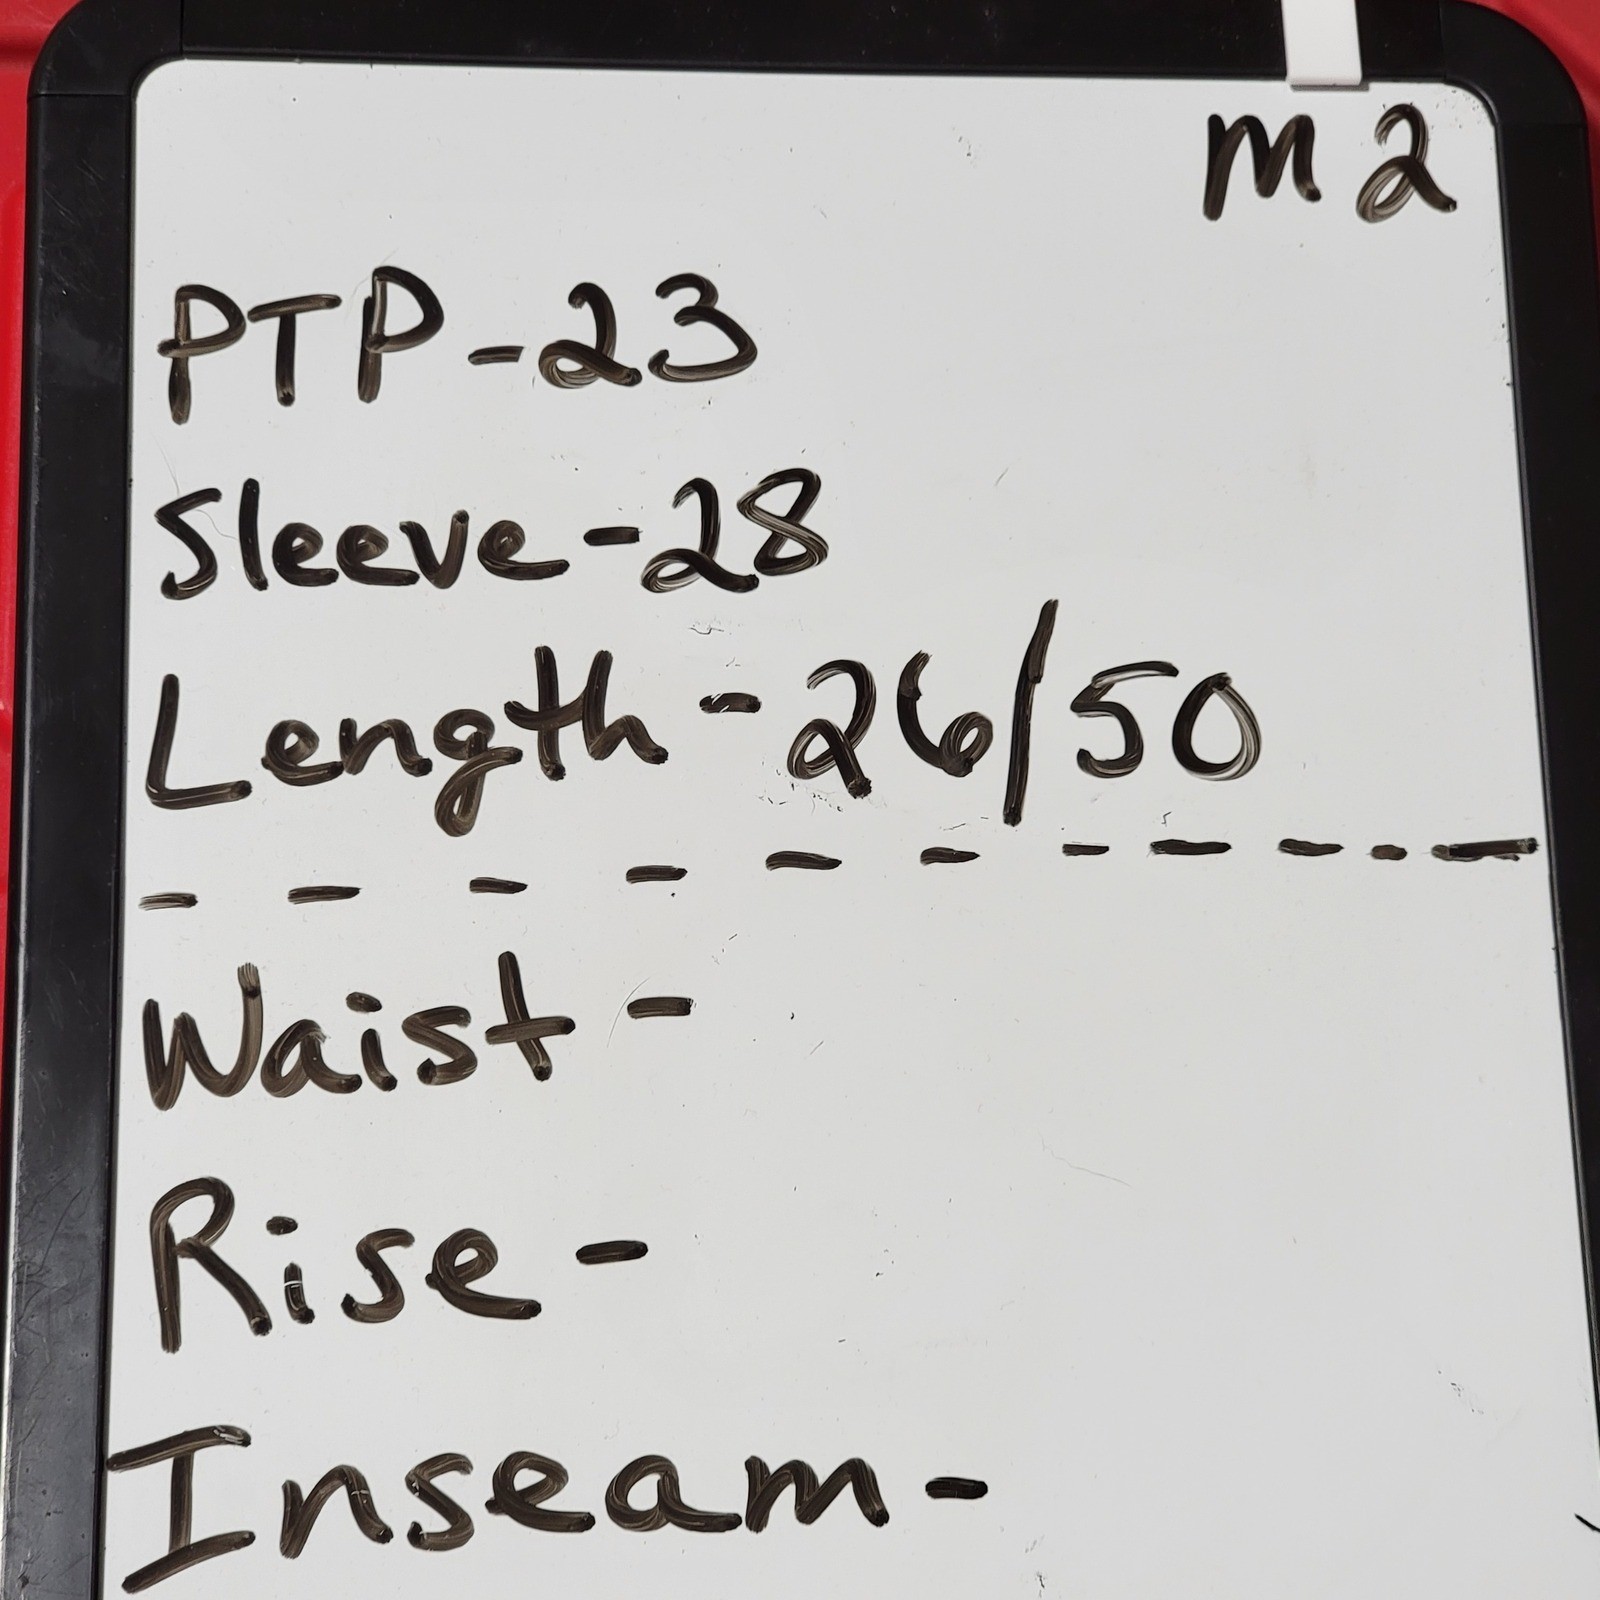 M 2
PTP - 23
Sleeve - 28
Length - 26/50
- - - - - - - - - - -
Waist -
Rise -
Inseam -